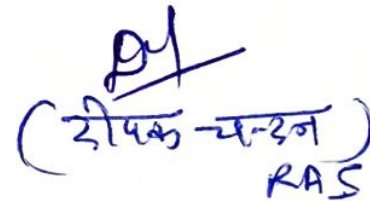 (दीपक चन्दन)
RAS